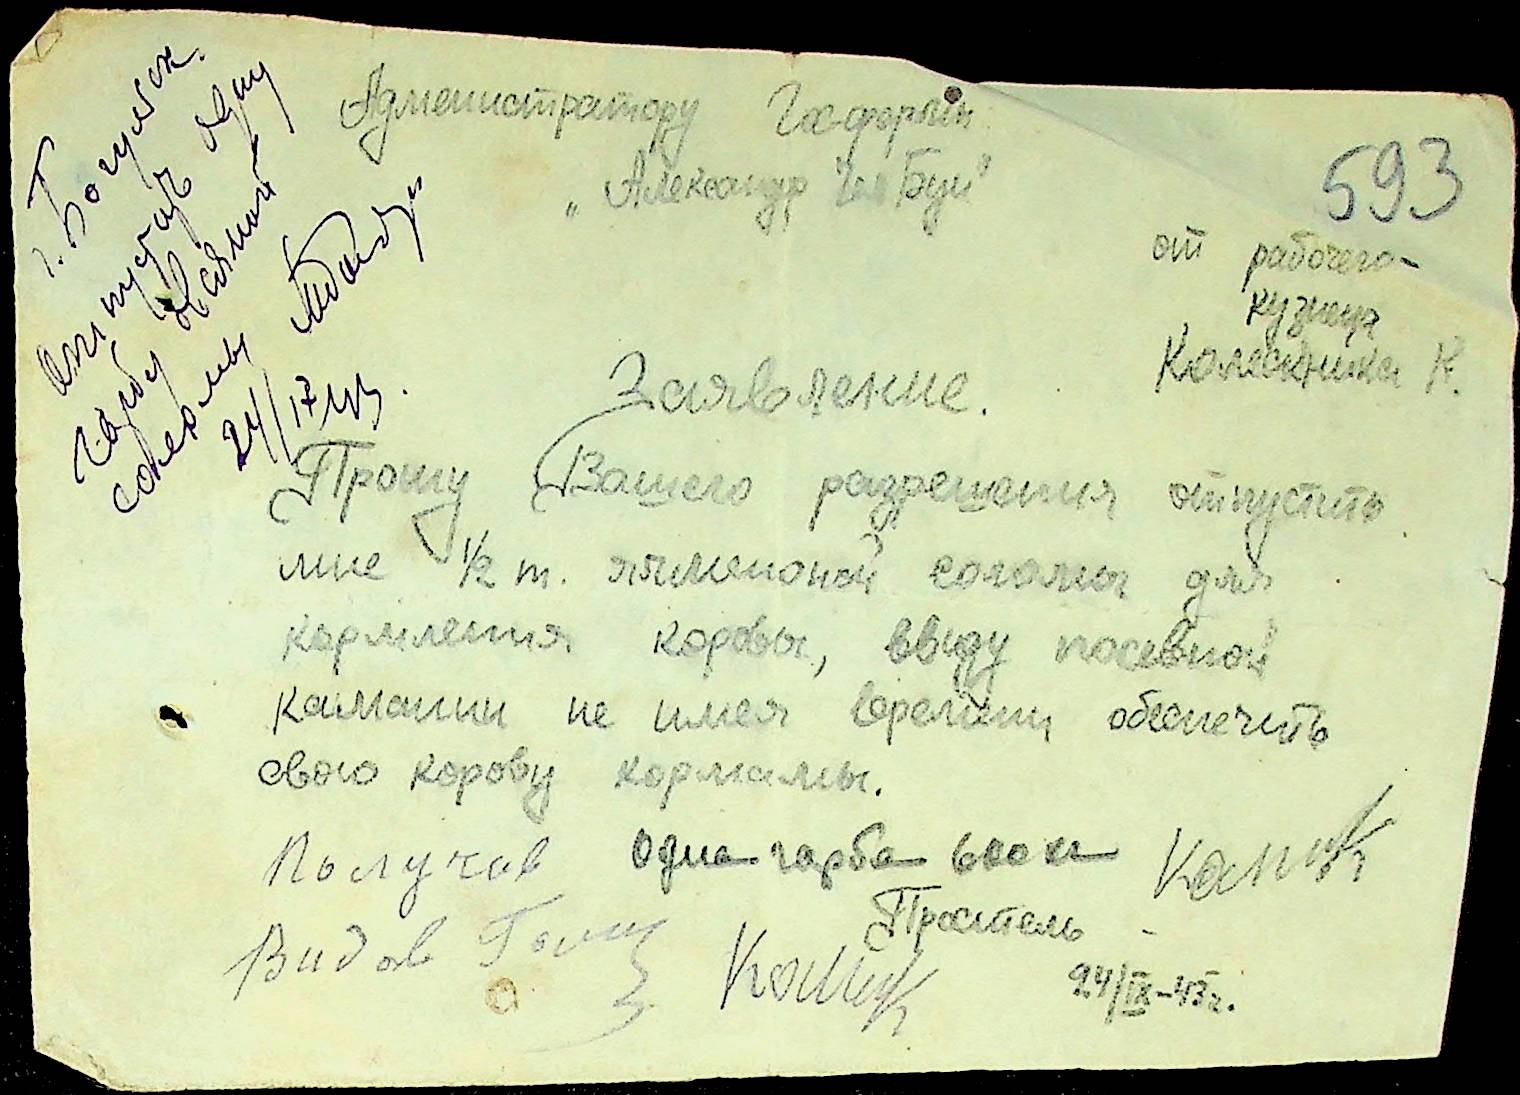 г. Богуслок.
отпустить одну
гарбу овсяной
соломы
24/17 43.
Администратору
"Александр
593
от рабочего-
кузнеца
Колесника К.
Заявление.
Прошу Вашего разрешения отпустить
мне 1/2 т. ячменоной соломы для
кормления коровы, ввиду посевной
кампании не имея времени обеспечить
свою корову кормамы.
Получав Одна гарба 600 кг
Проситель
Видав
24/IX-43г.